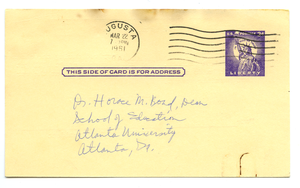 AUGUSTA
MAR 22
1961
LIBERTY
THIS SIDE OF CARD IS FOR ADDRESS
Dr. Horace M. Bond, Dean
School of Education
Atlanta University
Atlanta, Ga.